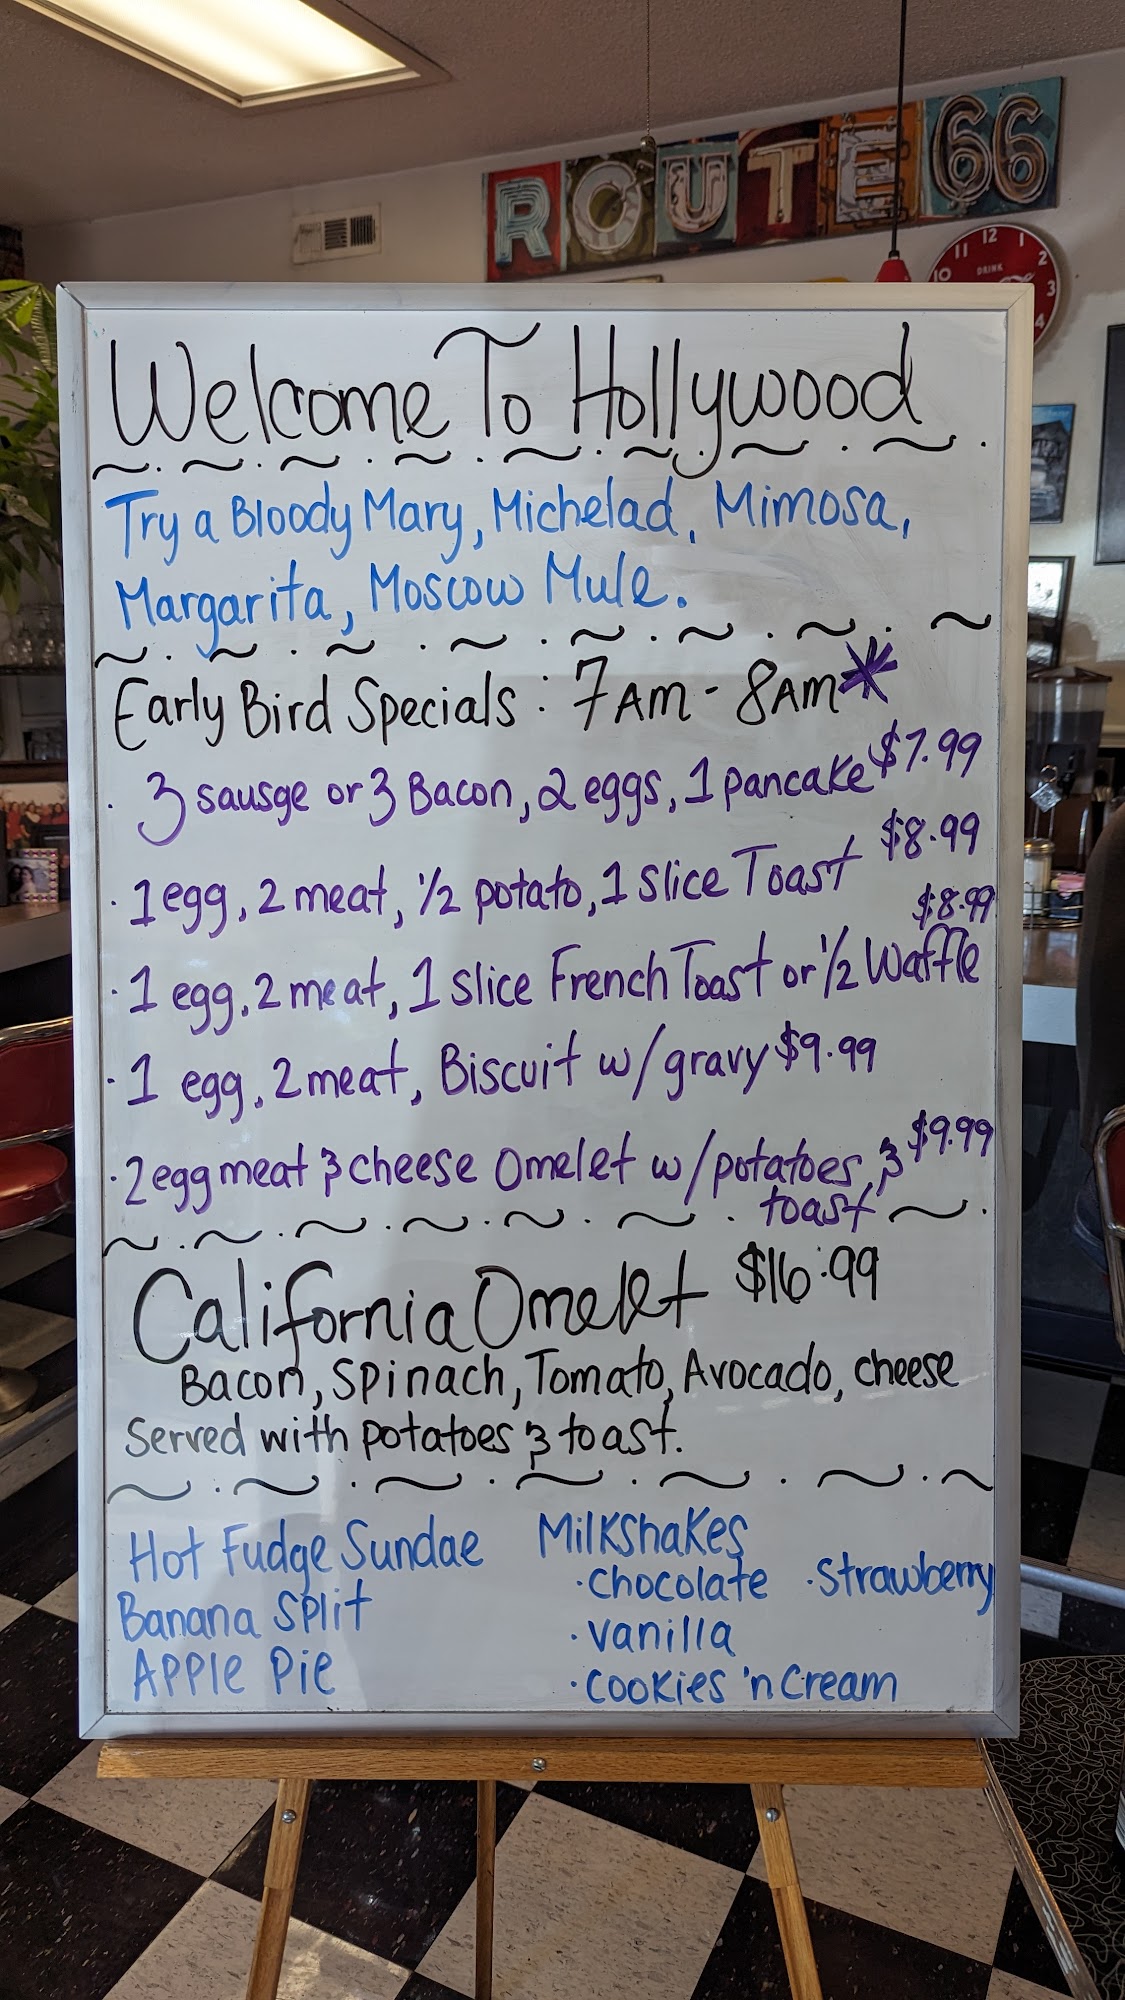 ROUTE 66
11 12 1
10 DRINK 2
3
4
Welcome To Hollywood
Try a Bloody Mary, Michelad, Mimosa,
Margarita, Moscow Mule.
Early Bird Specials: 7AM - 8AM*
· 3 sausge or 3 Bacon, 2 eggs, 1 pancake $7.99
· 1 egg, 2 meat, 1/2 potato, 1 slice Toast $8.99
· 1 egg, 2 meat, 1 slice French Toast or 1/2 Waffle $8.99
· 1 egg, 2 meat, Biscuit w/gravy $9.99
· 2 egg meat & cheese Omelet w/potatoes & $9.99
toast
California Omelet $16.99
Bacon, Spinach, Tomato, Avocado, cheese
Served with potatoes & toast.
Hot Fudge Sundae
Banana Split
Apple Pie
Milkshakes
· chocolate · Strawberry
· vanilla
· cookies 'n Cream